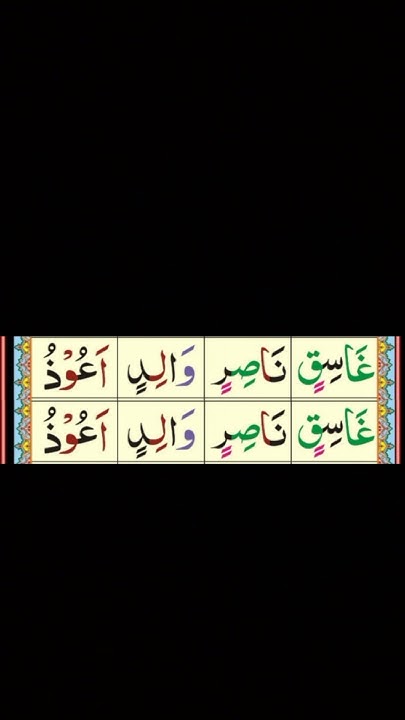 غَاسِقٍ نَاصِرٍ وَالِدٍ اَعُوْذُ
غَاسِقٍ نَاصِرٍ وَالِدٍ اَعُوْذُ